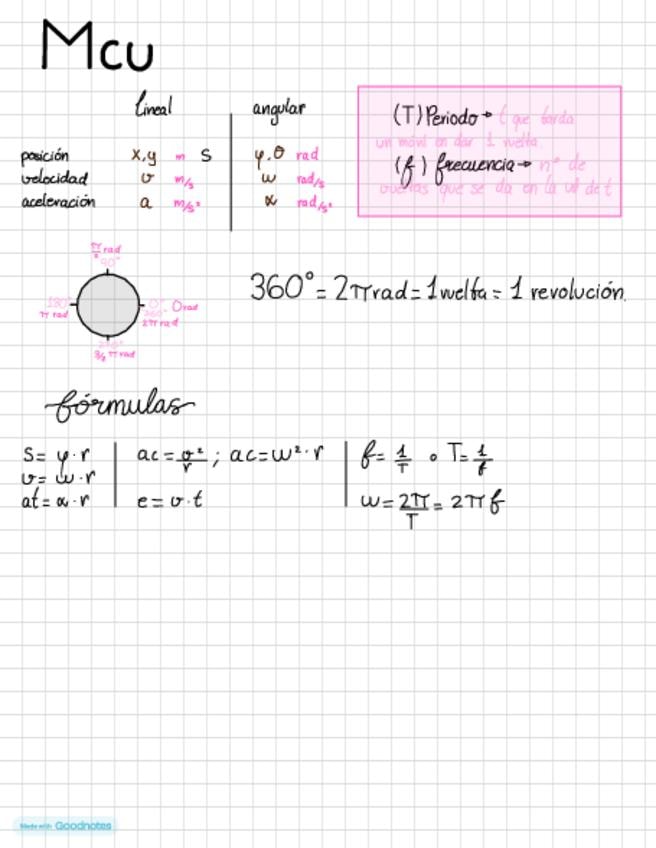 Mcu
lineal angular
posición x,y m S φ,θ rad
velocidad v m/s ω rad/s
aceleración a m/s² α rad/s²
(T) Periodo → t que tarda
un móvil en dar 1 vuelta.
(f) frecuencia → nº de
vueltas que se da en la ud de t
π/2 rad
90°
180°
π rad
0° 0 rad
360°
2π rad
270°
3/2 π rad
360° = 2π rad = 1 vuelta = 1 revolución.
fórmulas
S = φ · r
v = ω · r
at = α · r
ac = v²/r ; ac = ω² · r
e = v · t
f = 1/T o T = 1/f
ω = 2π/T = 2π f
Made with Goodnotes